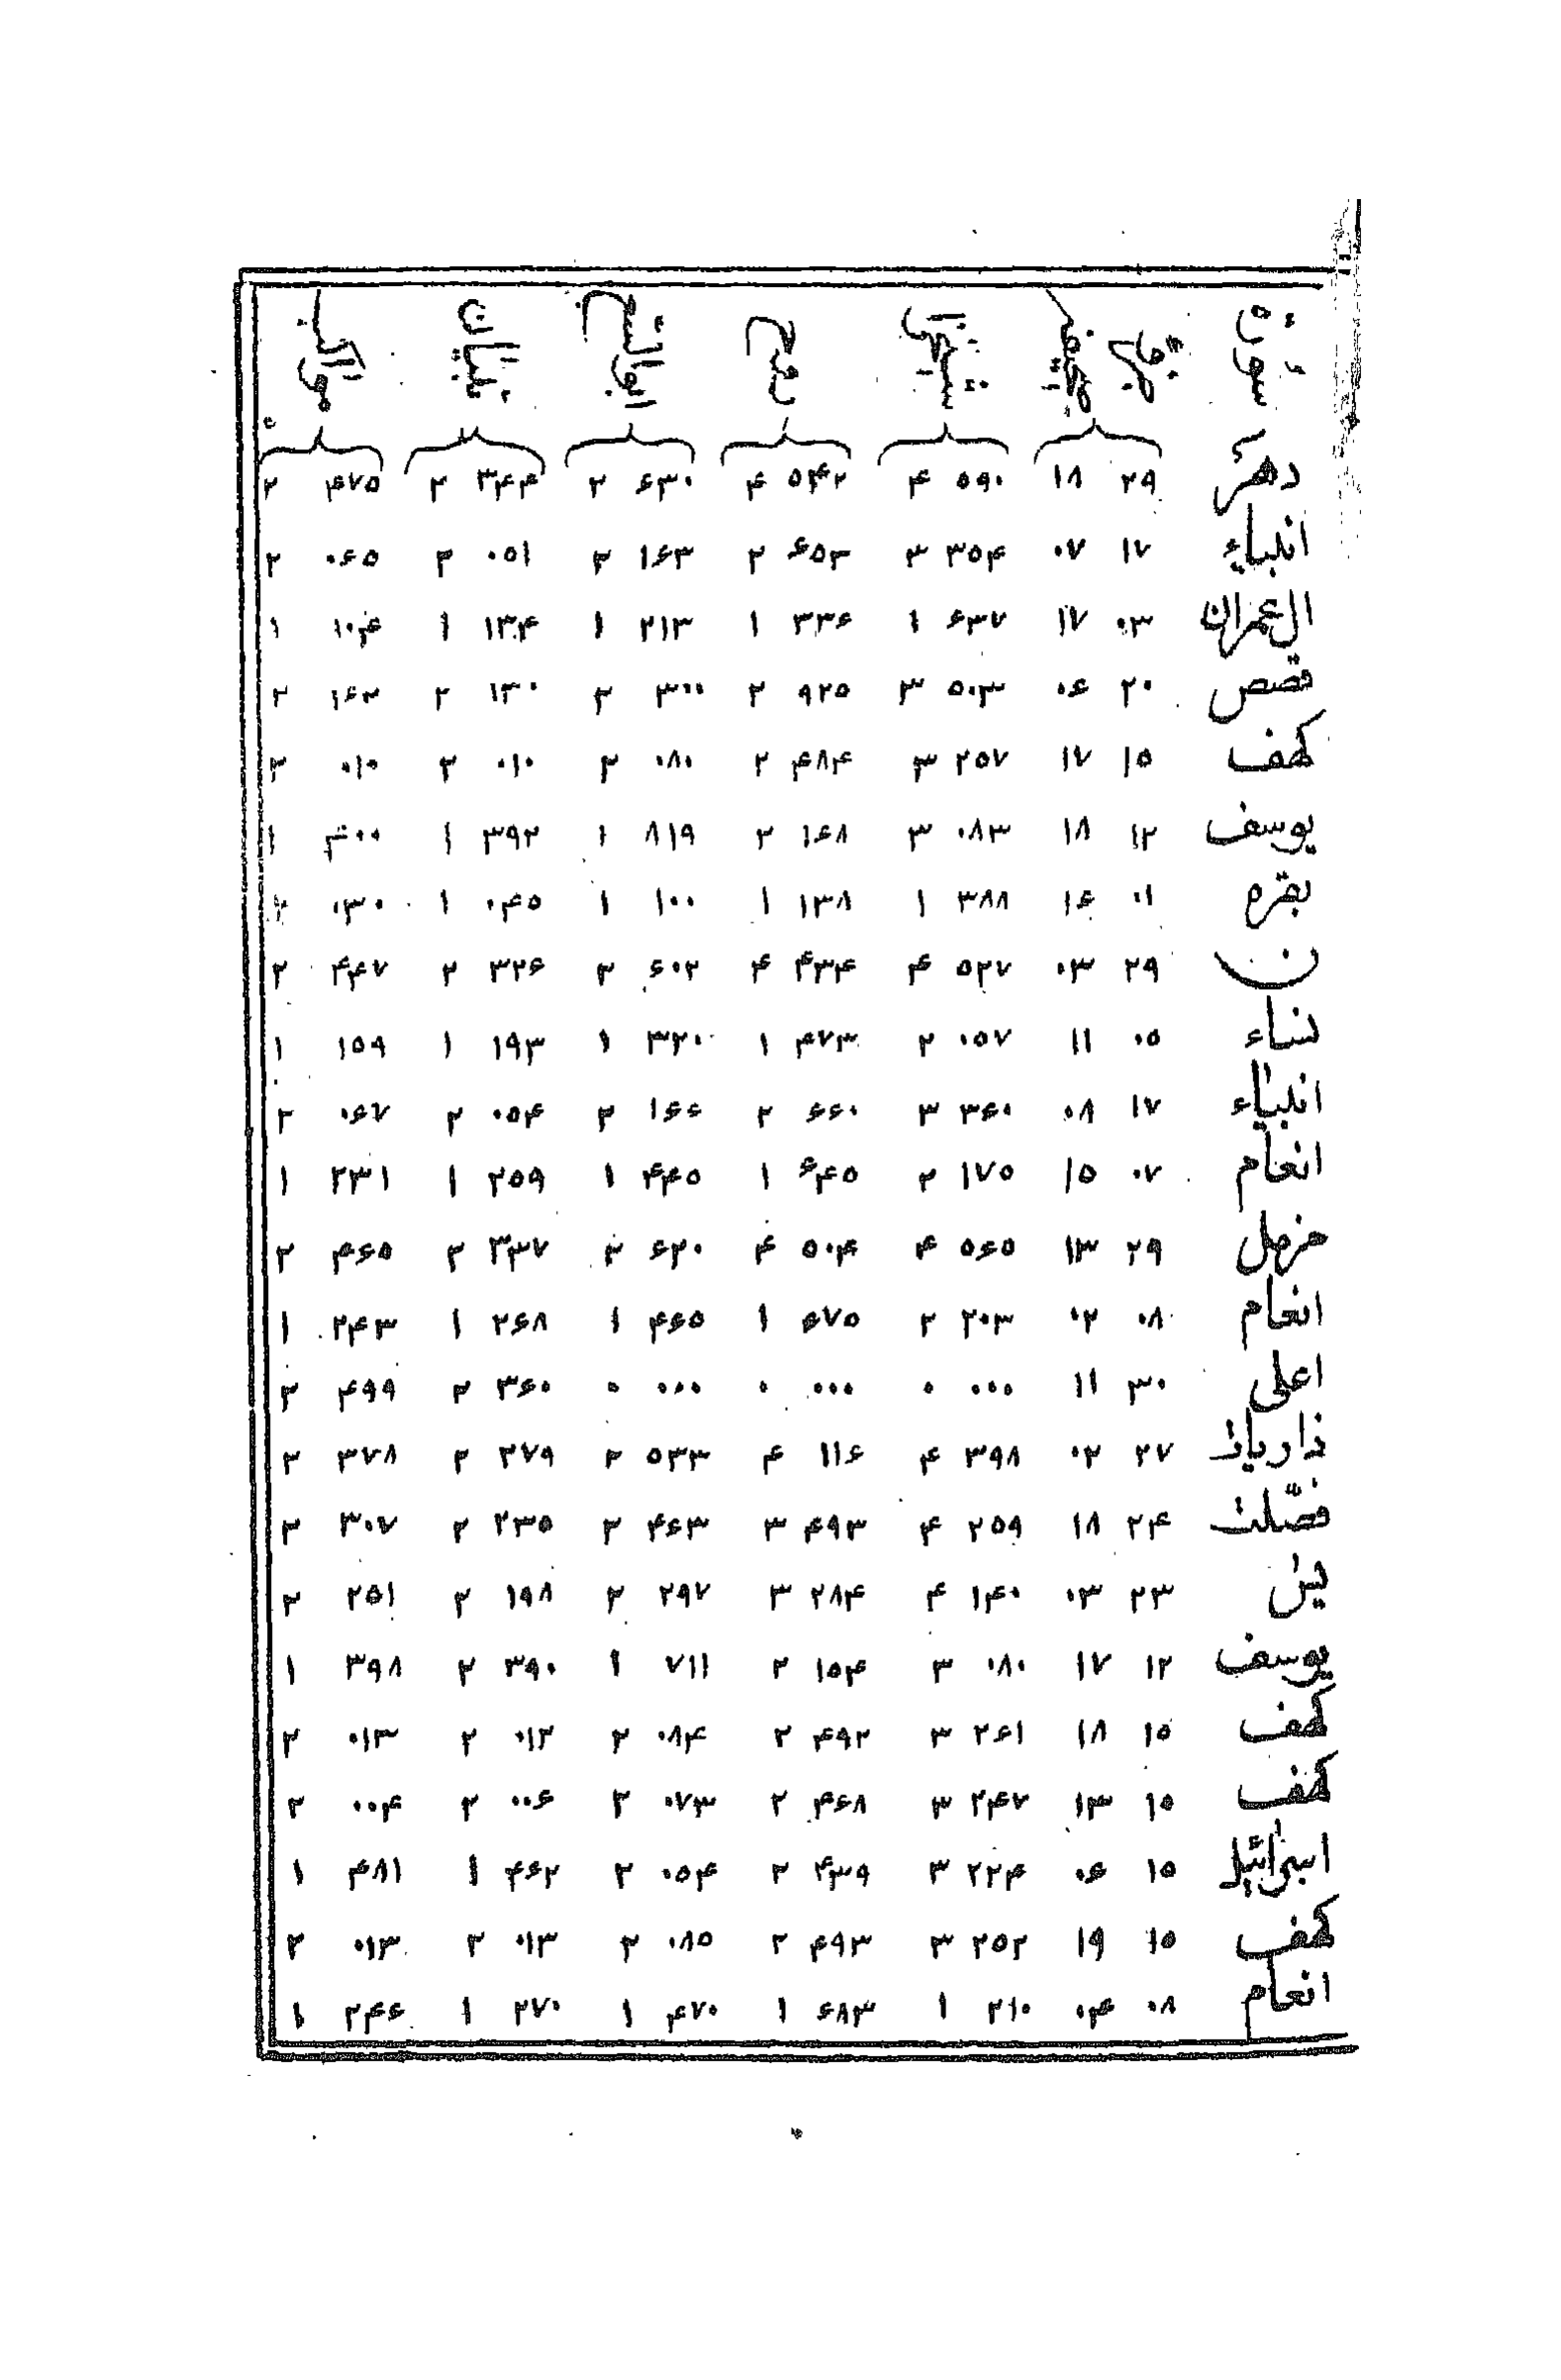 سوره جزء صفحه شبر روح ابوالفتوح تبیان مجمع البیان
دهر ۲۹ ۱۸ ۵۹۰ ۴ ۵۴۲ ۴ ۶۳۰ ۲ ۳۴۴ ۲ ۴۷۵ ۲
انبیاء ۱۷ ۰۷ ۳۵۴ ۳ ۶۵۳ ۲ ۱۶۳ ۲ ۰۵۱ ۲ ۰۶۵ ۲
ال عمران ۰۳ ۱۷ ۶۳۷ ۱ ۳۳۶ ۱ ۲۱۳ ۱ ۱۳۴ ۱ ۱۰۴ ۱
قصص ۲۰ ۰۶ ۵۰۳ ۳ ۹۲۵ ۲ ۳۰۰ ۲ ۱۳۰ ۲ ۱۶۲ ۲
کهف ۱۵ ۱۷ ۲۵۷ ۳ ۴۸۴ ۲ ۰۸۰ ۲ ۰۱۰ ۲ ۰۱۰ ۲
یوسف ۱۲ ۱۸ ۰۸۳ ۳ ۱۶۸ ۲ ۸۱۹ ۱ ۳۹۲ ۱ ۴۰۰ ۱
بقره ۰۱ ۱۶ ۳۸۸ ۱ ۱۳۸ ۱ ۱۰۰ ۱ ۰۴۵ ۱ ۰۳۰ ۲
ن ۲۹ ۰۳ ۵۲۷ ۴ ۴۳۴ ۴ ۶۰۲ ۲ ۳۲۶ ۲ ۴۴۷ ۲
نساء ۰۵ ۱۱ ۰۵۷ ۲ ۴۷۳ ۱ ۳۲۰ ۱ ۱۹۳ ۱ ۱۵۹ ۱
انبیاء ۱۷ ۰۸ ۳۶۰ ۳ ۶۶۰ ۲ ۱۶۶ ۲ ۰۵۴ ۲ ۰۶۷ ۲
انعام ۰۷ ۱۵ ۱۷۵ ۲ ۶۴۵ ۱ ۴۴۵ ۱ ۲۵۹ ۱ ۲۳۱ ۱
مزمل ۲۹ ۱۳ ۵۶۵ ۴ ۵۰۴ ۴ ۶۲۰ ۲ ۳۳۷ ۲ ۴۶۵ ۲
انعام ۰۸ ۰۲ ۲۰۳ ۲ ۶۷۵ ۱ ۴۶۵ ۱ ۲۶۸ ۱ ۲۴۳ ۱
اعلی ۳۰ ۱۱ ۰۰۰ ۰ ۰۰۰ ۰ ۰۰۰ ۰ ۳۶۰ ۲ ۴۹۹ ۲
ذاریات ۲۷ ۰۲ ۳۹۸ ۴ ۱۱۶ ۴ ۵۳۳ ۲ ۲۷۹ ۲ ۳۷۸ ۲
فصّلت ۲۴ ۱۸ ۲۵۹ ۴ ۴۹۳ ۳ ۴۶۳ ۲ ۲۳۵ ۲ ۳۰۷ ۲
یس ۲۳ ۰۳ ۱۴۰ ۴ ۲۸۴ ۳ ۲۹۷ ۲ ۱۹۸ ۲ ۲۵۱ ۲
یوسف ۱۲ ۱۷ ۰۸۰ ۳ ۱۵۴ ۲ ۷۱۱ ۱ ۳۹۰ ۲ ۳۹۸ ۱
کهف ۱۵ ۱۸ ۲۶۱ ۳ ۴۹۲ ۲ ۰۸۴ ۲ ۰۱۲ ۲ ۰۱۳ ۲
کهف ۱۵ ۱۳ ۲۴۷ ۳ ۴۶۸ ۲ ۰۷۳ ۲ ۰۰۶ ۲ ۰۰۴ ۲
اسرائیل ۱۵ ۰۶ ۲۲۴ ۳ ۴۳۹ ۲ ۰۵۴ ۲ ۴۶۲ ۱ ۴۸۱ ۱
کهف ۱۵ ۱۹ ۲۵۲ ۳ ۴۹۳ ۲ ۰۸۵ ۲ ۰۱۳ ۲ ۰۱۳ ۲
انعام ۰۸ ۰۴ ۲۱۰ ۱ ۶۸۳ ۱ ۴۷۰ ۱ ۲۷۰ ۱ ۲۴۶ ۱